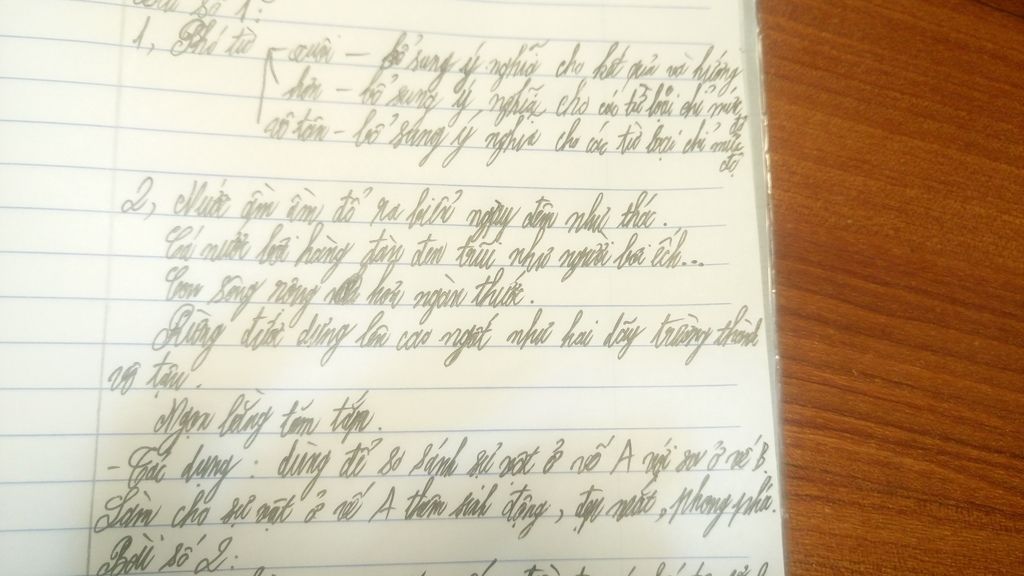 Bài số 1:
1, Phó từ xuôi – bổ sung ý nghĩa cho kết quả và hướng
hơn – bổ sung ý nghĩa cho các từ loại chỉ mức độ
vô tận – bổ sung ý nghĩa cho các từ loại chỉ mức độ
2, Nước ầm ầm đổ ra biển ngày đêm như thác.
Cá nước bơi hàng đàn đen trũi như người bơi ếch...
Con sông rộng hơn ngàn thước.
Rừng đước dựng lên cao ngất như hai dãy trường thành
vô tận.
Ngọn bằng tăm tắp.
– Tác dụng: dùng để so sánh sự vật ở vế A với sự ở vế B.
Làm cho sự vật ở vế A thêm sinh động, đẹp nhất, phong phú.
Bài số 2: